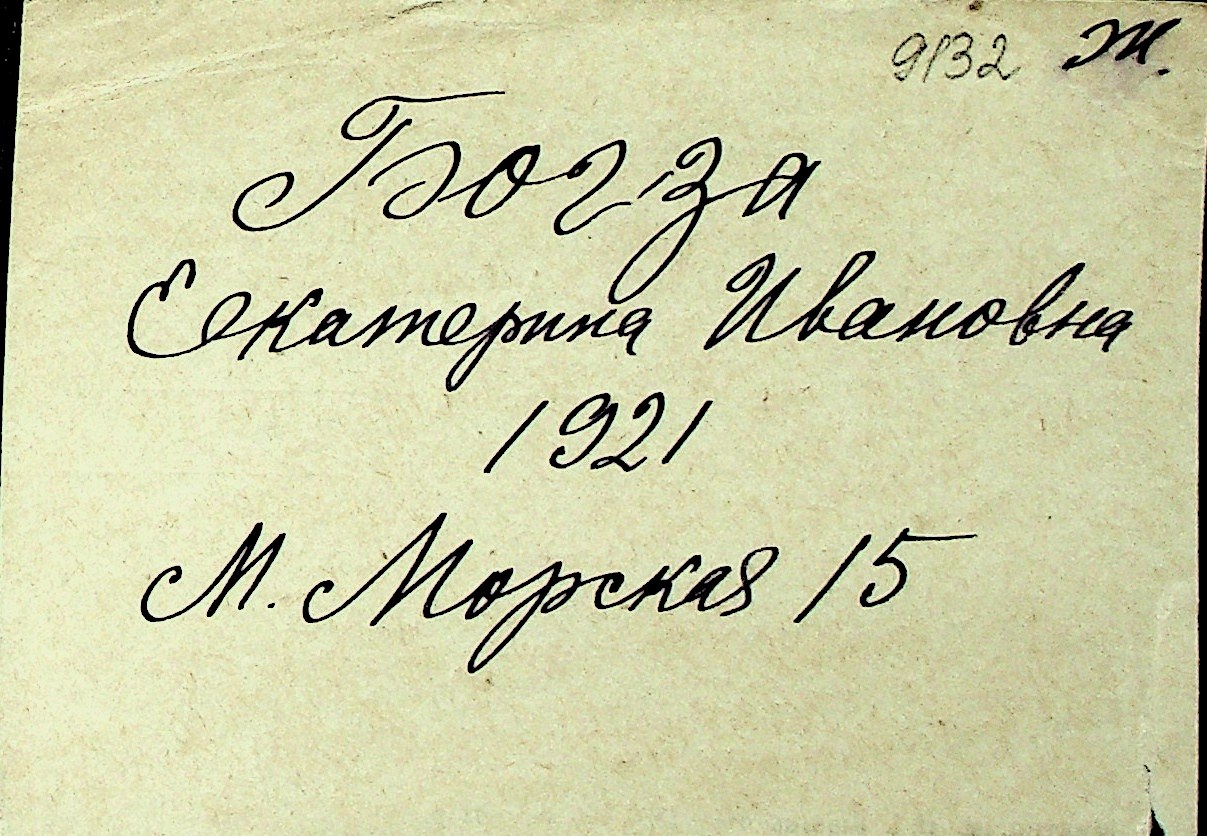 9132 Ж.
Богза
Екатерина Ивановна
1921
М. Морская 15